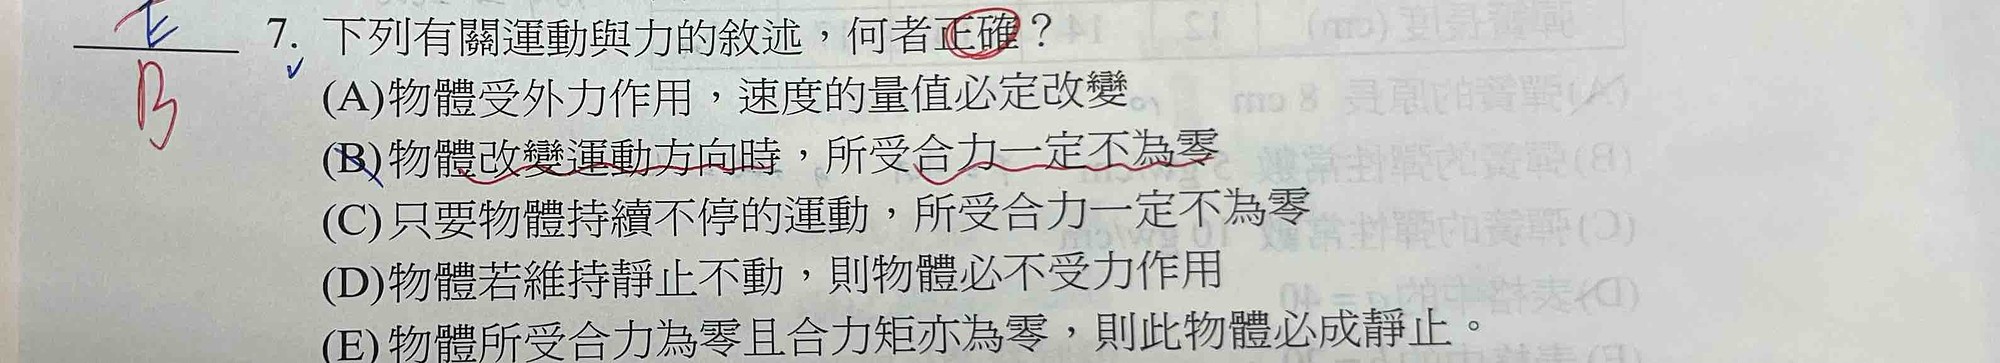 E
B
7. 下列有關運動與力的敘述，何者正確？
(A)物體受外力作用，速度的量值必定改變。
(B)物體改變運動方向時，所受合力一定不為零
(C)只要物體持續不停的運動，所受合力一定不為零
(D)物體若維持靜止不動，則物體必不受力作用
(E)物體所受合力為零且合力矩亦為零，則此物體必成靜止。